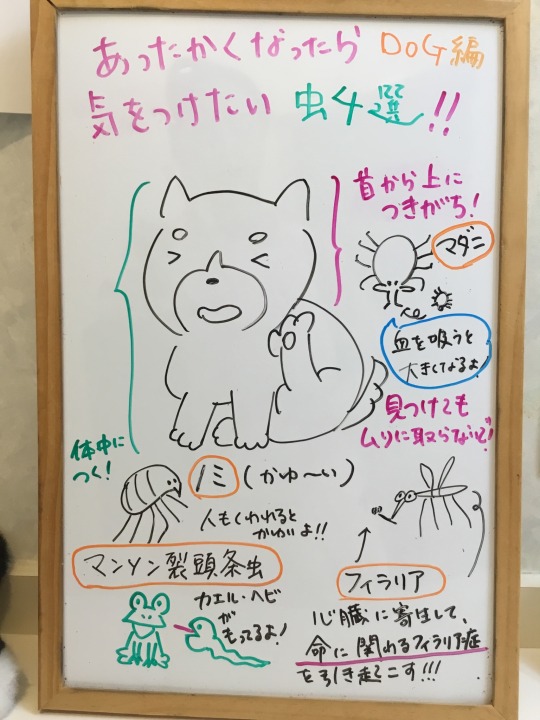 あったかくなったら DOG編
気をつけたい 虫4選!!
首から上に
つきがち!
マダニ
血を吸うと
大きくなるよ
見つけても
ムリに取らないで!
体中に
つく!
ノミ(かゆ〜い)
人もくわれると
かゆいよ!!
マンソン裂頭条虫
カエル・ヘビ
が
もってるよ!
フィラリア
心臓に寄生して、
命に関わるフィラリア症
を引き起こす!!!